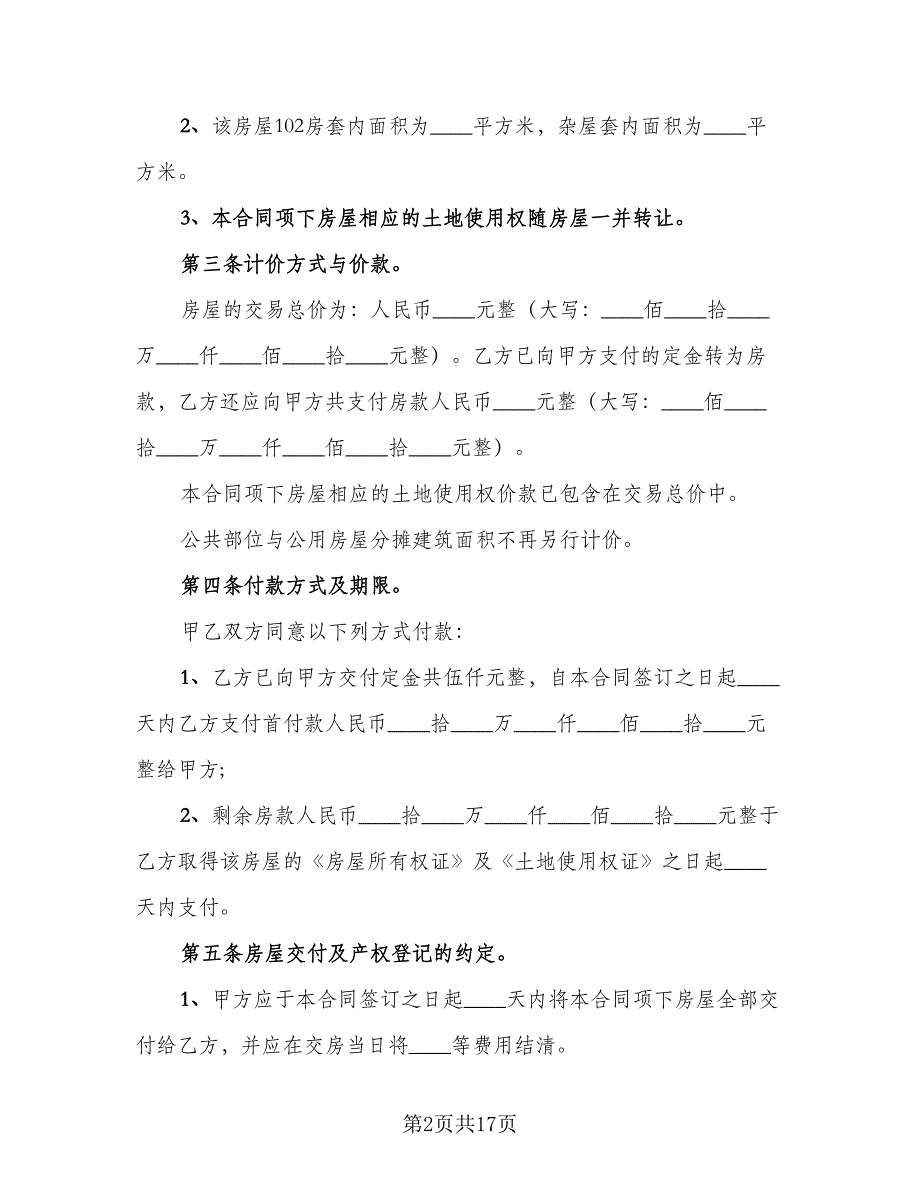 2、该房屋102房套内面积为____平方米，杂屋套内面积为____平
方米。
3、本合同项下房屋相应的土地使用权随房屋一并转让。
第三条计价方式与价款。
房屋的交易总价为：人民币____元整（大写：____佰____拾____
万____仟____佰____拾____元整）。乙方已向甲方支付的定金转为房
款，乙方还应向甲方共支付房款人民币____元整（大写：____佰____
拾____万____仟____佰____拾____元整）。
本合同项下房屋相应的土地使用权价款已包含在交易总价中。
公共部位与公用房屋分摊建筑面积不再另行计价。
第四条付款方式及期限。
甲乙双方同意以下列方式付款：
1、乙方已向甲方交付定金共伍仟元整，自本合同签订之日起____
天内乙方支付首付款人民币____拾____万____仟____佰____拾____元
整给甲方;
2、剩余房款人民币____拾____万____仟____佰____拾____元整于
乙方取得该房屋的《房屋所有权证》及《土地使用权证》之日起____
天内支付。
第五条房屋交付及产权登记的约定。
1、甲方应于本合同签订之日起____天内将本合同项下房屋全部交
付给乙方，并应在交房当日将____等费用结清。
第2页共17页